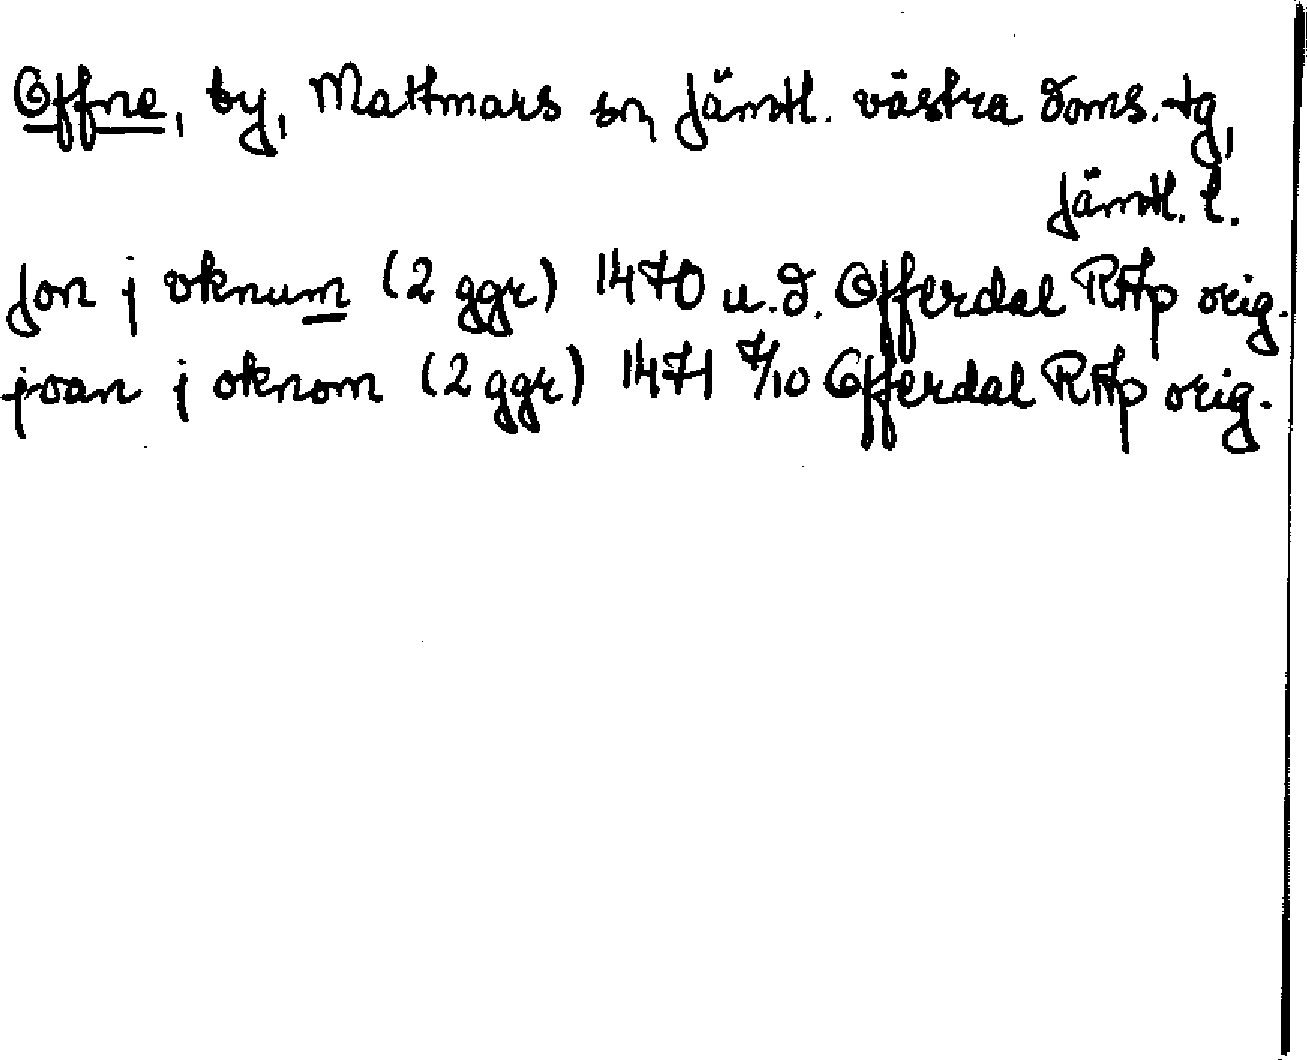 Offne, by, Mattmars sn, Jämtl. västra doms. tg,
Jämtl. l.
Jon j oknum (2 ggr) 1470 u.d. Offerdal RAp orig.
joan j oknom (2 ggr) 1471 7/10 Offerdal RAp orig.